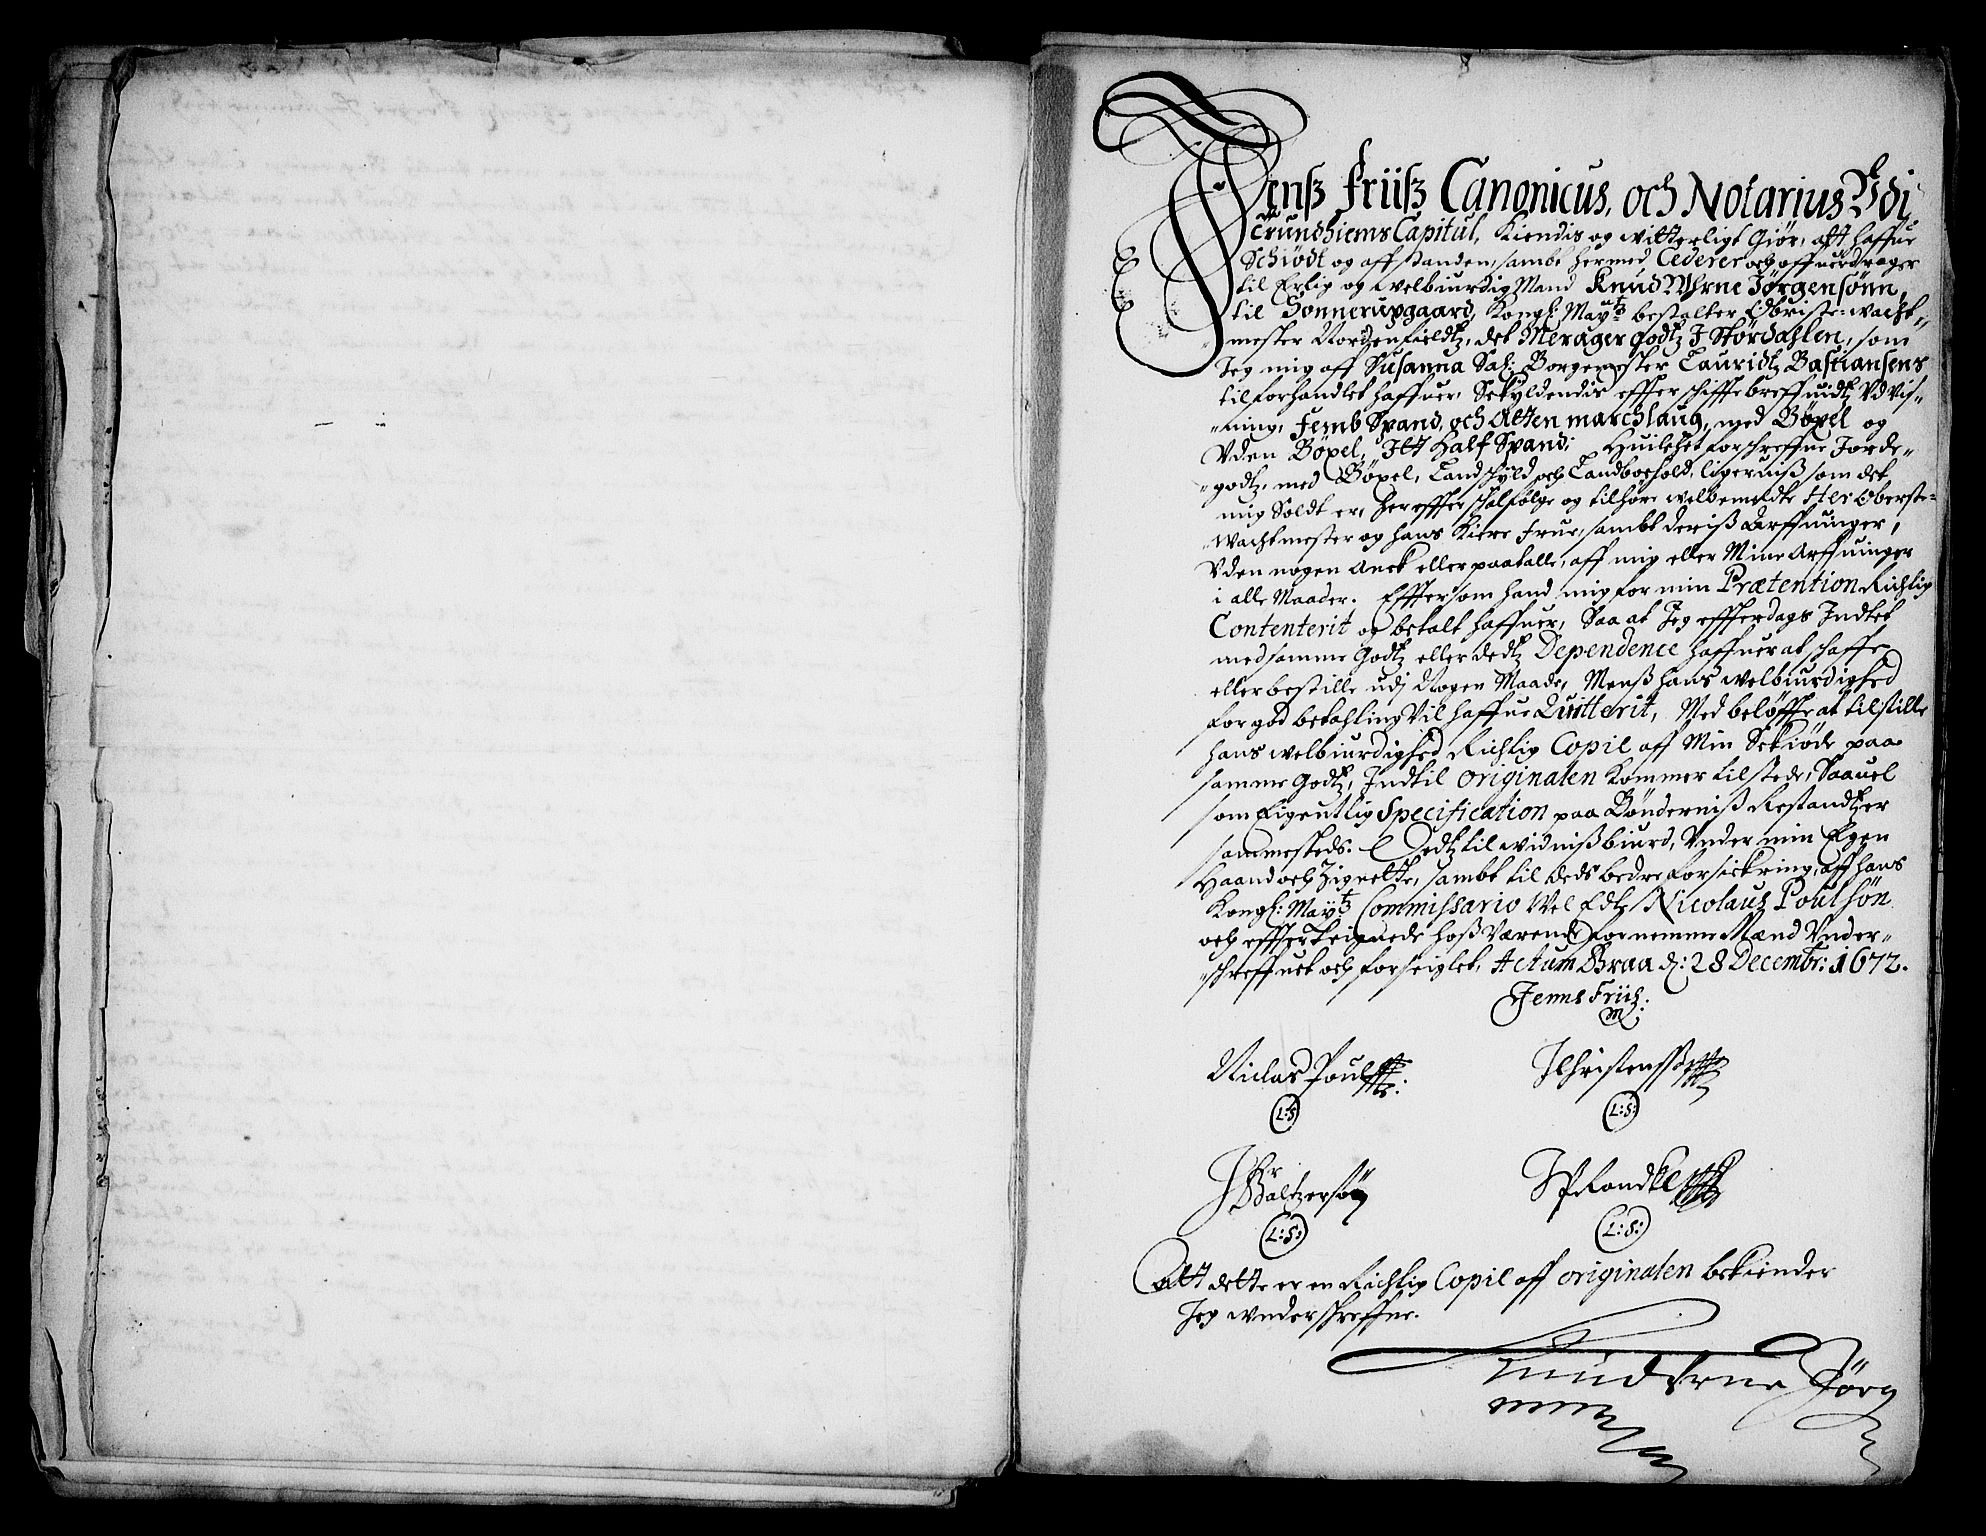 Jenß Friiß Canonicus, och Notarius Vdi
Trundhiems Capitul, Kiendis og witterligt Giør, att haffue
Schiødt og affstanden, sambt hermed Cederer och affuerdrager
til Erlig og welbiurdig Mand Knud Wrne Jørgensønn,
til Sonnerupgaard, Kongl: Maytz bestalter Obriste-wacht-
mester Nordenfieldtz, det Merager godtz J Størdahlen, som
Jeg mig aff Susanna Sal: Borgemester Lauridtz Bastiansens
tilforhandlet haffuer, Skyldendis effter schifftebreffuidtz Vdvis-
-ning, Femb Spand, och Atten marchlaug, med Böxel og
Vden Böxel, Itt Half Spand: Huilchet forschreffne Jorde-
-godtz, med Böxel, Landschyld och Landboehold, ligeruiß som det
mig Soldt er, hereffter schal følge og tilhøre welbemeldte Her Oberste-
-wachtmester og hans Kiere Frue, sambt deriß Arffuinger,
Vden nogen Anck eller paatalle, aff mig eller Mine Arffuinger
i alle Maader. Efftersom hand mig for min Prætention Richtig
Contenterit og betalt haffuer, Saa at Jeg effterdags Indtet
med samme Godtz eller dedtz Dependence haffuer at schaffe
eller bestille udj Nogen Maade, Menß hans welbiurdighed
for god betahling Vil haffue Quitterit, Med beløffte at tilstille
hans welbiurdighed Richtig Copil aff Min Skiøde paa
samme Godtz, Indtil originalen Kommer tilstede, Saauel
som Eigentlig Specification paa Bønderniß Restandtzer
sammesteds. Dedtz til widnißbiurd, Vnder min Egen
Haand och Zignette, sambt til deds bedre forsickring, aff hans
Kongl: Maytz Commissario Wel Edle Nicolaus Poulsøn
och effterteignede hoß Værende fornemme Mænd Vnder-
-schreffuet och forseiglet, Actum Braa d: 28 Decembr: 1672.
Jenns Friis:
mp
Niclas Poulß:
JChristensß
L:S:
L:S:
JHr Baltzersøn
L:S:
L:S:
Att dette er en Richtig Copil aff originalen bekiender
Jeg vnderschreffne.
Knud Vrne Jørg